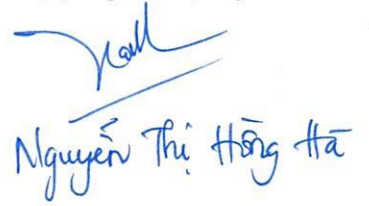 Nguyễn Thị Hồng Hà